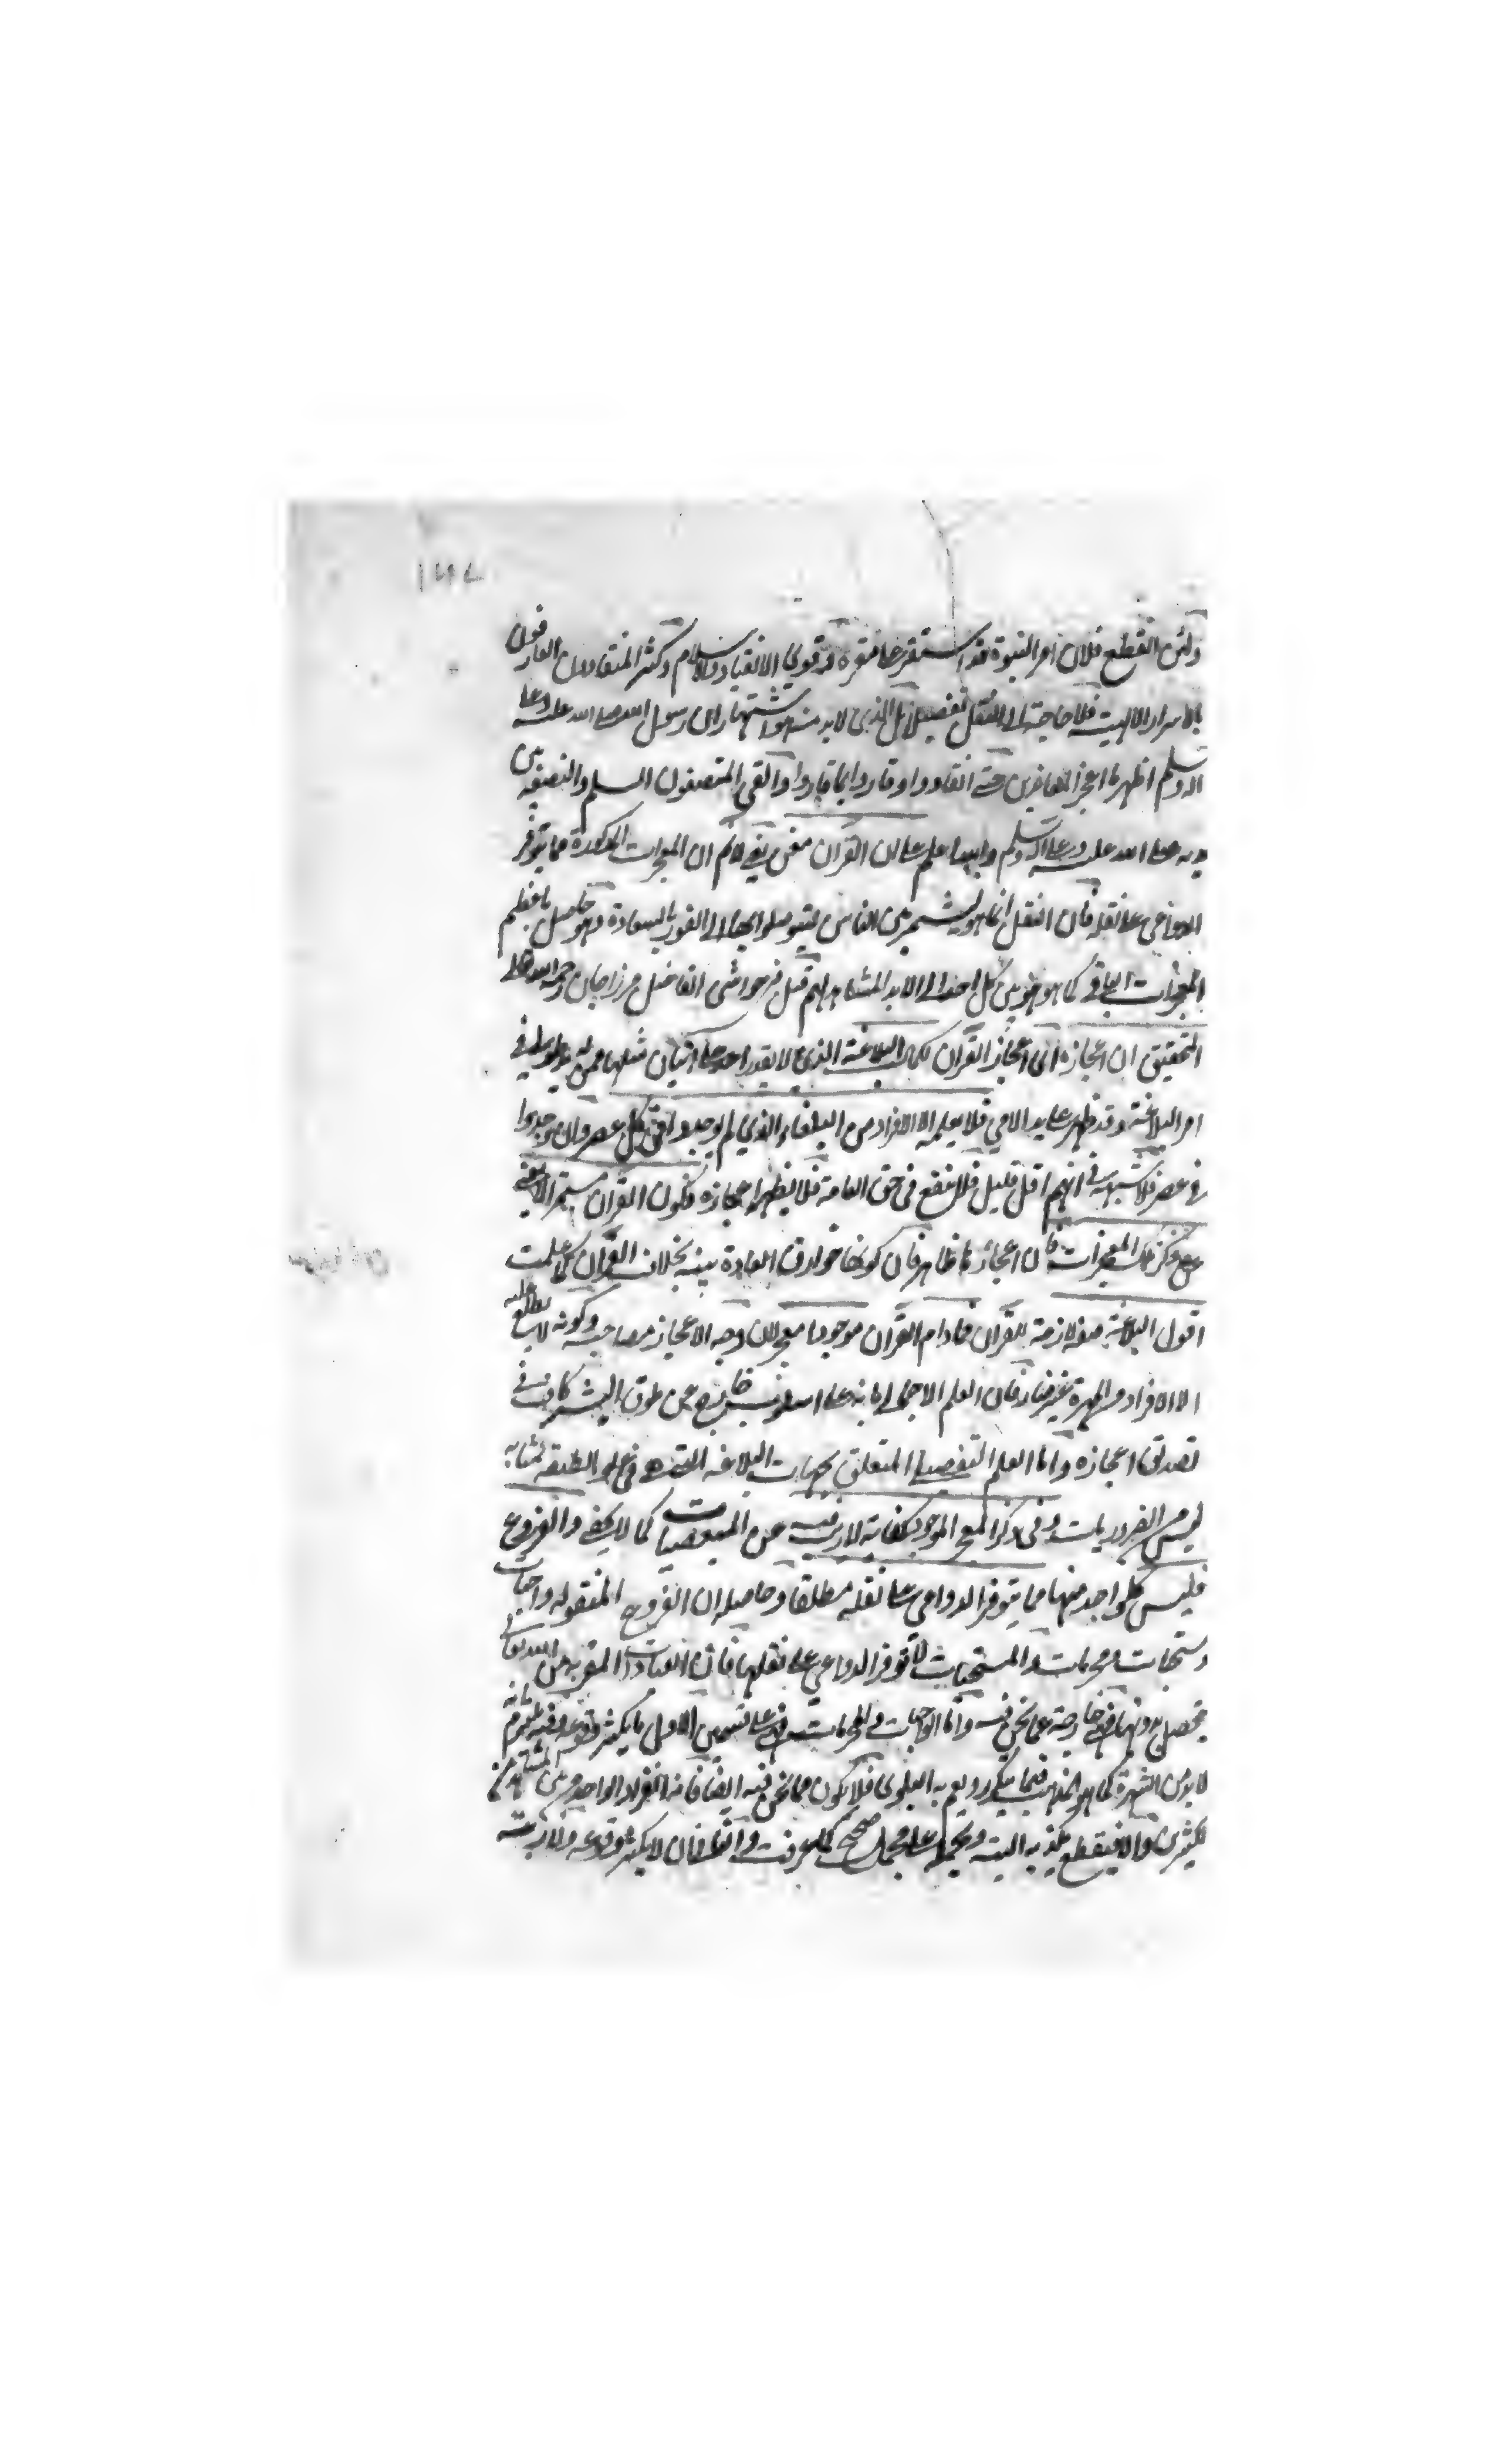 ١٦٧
ولئن انقطع فلان امر النبوة قد استقر على مقره وقوي الانقياد والاسلام وكثر المنقادون العارفون
بالاسرار الالهية فلا حاجة الى النقل تفصيلا بل الذي لا بد منه هو اشتهار ان رسول الله صلى الله عليه وعلى
اله وسلم اظهر ما اعجز المعاضرين حتى انقادوا وقادوا والقى المتصفون السلم بين
يديه صلى الله عليه وعلى اله وسلم وايضا على ان القران مغن يعني لانم ان المعجزات المذكورة مما يتوفر
الدواعي على نقله فان النقل انما هو ليشتهر بين الناس ليتوصلوا بها الى الفوز بالسعادة وهو حاصل باعظم
المعجزات الباقي كما هو بين كل احد الى الابد قيل في حواشي الفاضل مرزاجان رحمه الله تعالى
التحقيق ان اعجازه اي اعجاز القران لكمال البلاغة الذي لا يقدر احد على اتيان مثلها ممن له يد طولى في
امر البلاغة وقد ظهر على يد الامي فلا يعلمه الا الافراد من البلغاء الذي لم يوجدوا في كل عصر وان وجدوا
في عصر فلا شبهة في انهم اقل قليل فلا ينفع في حق العامة فلا يظهر اعجازه فكون القران مستمرا لا يغني
عن ذكر تلك المعجزات فان اعجازها ظاهر فان كونها خوارق العادة بينة بخلاف القران كما علمت
اقول البلاغة صفة لازمة للقران فما دام القران موجودا معجز لان وجه الاعجاز مصاحبه وكونه لا يطلع عليه
الا الافراد والمهرة غير ضار فان العلم الاجمالي بانه على اسلوب خارج عن طوق البشر كاف في
تصديق اعجازه واما العلم التفصيلي المتعلق بجهات البلاغة
ليس من الضروريات وفي ذكر المعجز الموجود كفاية لا ريب فيه عن المنقضيات كما لا يخفى والفروع
فليس كل واحد منها مما يتوفر الدواعي على نقله مطلقا وحاصله ان الفروع المنقولة واجبات
ومستحبات ومحرمات والمستحبات لا تتوفر الدواعي على نقلها فان العبادات المقربة من الله تعالى
يحصل بدونها فهي خارجة عما نحن فيه واما الواجبات والمحرمات فهي على قسمين الاول ما يكثر وقوعه
لا بد من الشهرة كما هو المذهب فيما يتكرر ويعم به البلوى فلا يكون مما نحن فيه ايضا فانه انفراد الواحد من بين
كثيرين والا فيقطع بكذبه البتة ويحمل على محمل صحيح كما عرفت والثاني ما لا يكثر وقوعه ولا ريب